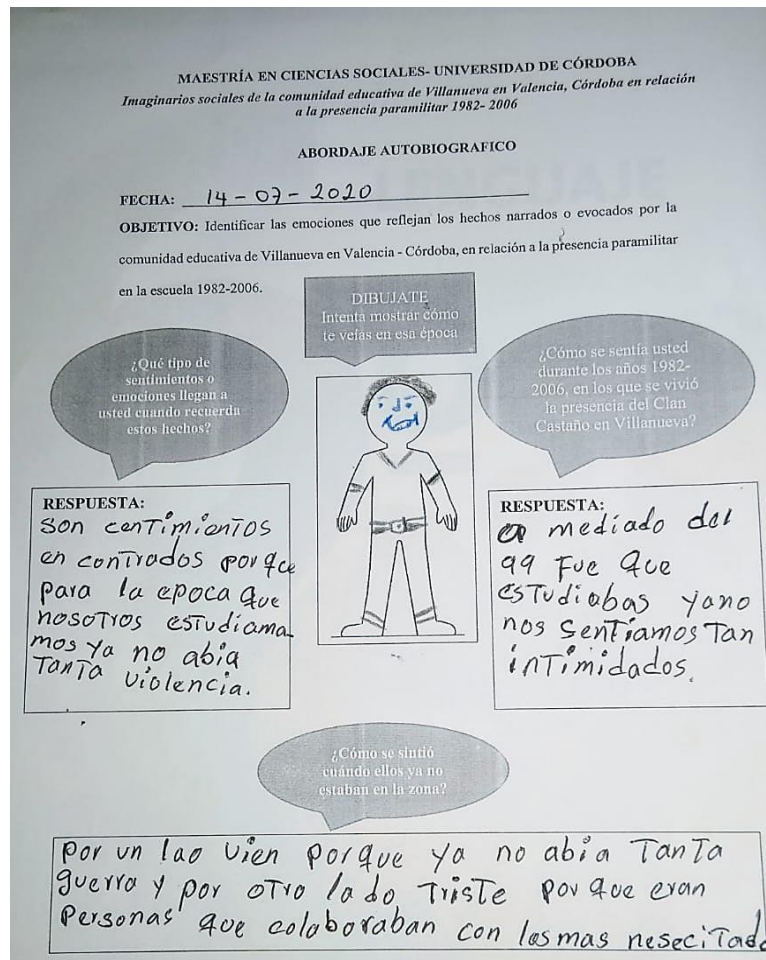 MAESTRÍA EN CIENCIAS SOCIALES- UNIVERSIDAD DE CÓRDOBA
Imaginarios sociales de la comunidad educativa de Villanueva en Valencia, Córdoba en relación
a la presencia paramilitar 1982- 2006
ABORDAJE AUTOBIOGRAFICO
FECHA: 14-07-2020
OBJETIVO: Identificar las emociones que reflejan los hechos narrados o evocados por la
comunidad educativa de Villanueva en Valencia - Córdoba, en relación a la presencia paramilitar
en la escuela 1982-2006.
DIBUJATE
Intenta mostrar cómo
te veías en esa época
¿Qué tipo de
sentimientos o
emociones llegan a
usted cuando recuerda
estos hechos?
¿Cómo se sentía usted
durante los años 1982-
2006, en los que se vivió
la presencia del Clan
Castaño en Villanueva?
RESPUESTA:
son centimientos
en contrados porque
para la epoca que
nosotros estudiama
mos ya no abia
Tanta violencia.
RESPUESTA:
a mediado del
99 Fue que
esTudiabas yano
nos sentiamos Tan
inTimidados.
¿Cómo se sintió
cuándo ellos ya no
estaban en la zona?
por un lao vien porque ya no abia Tanta
guerra y por otro lado Triste porque eran
personas que colaboraban con los mas nesecitado